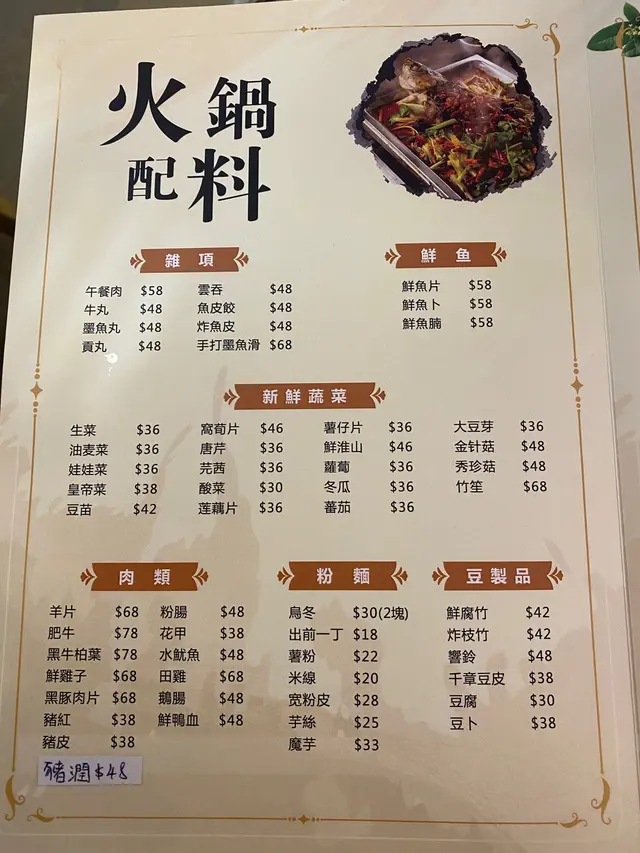 火鍋
配料
雜項
午餐肉 $58 雲吞 $48
牛丸 $48 魚皮餃 $48
墨魚丸 $48 炸魚皮 $48
貢丸 $48 手打墨魚滑 $68
鮮鱼
鮮魚片 $58
鮮魚卜 $58
鮮魚腩 $58
新鮮蔬菜
生菜 $36 窩荀片 $46 薯仔片 $36 大豆芽 $36
油麦菜 $36 唐芹 $36 鮮淮山 $46 金针菇 $48
娃娃菜 $36 芫茜 $36 蘿蔔 $36 秀珍菇 $48
皇帝菜 $38 酸菜 $30 冬瓜 $36 竹笙 $68
豆苗 $42 莲藕片 $36 蕃茄 $36
肉類
羊片 $68 粉腸 $48
肥牛 $78 花甲 $38
黑牛柏葉 $78 水魷魚 $48
鮮雞子 $68 田雞 $68
黑豚肉片 $68 鵝腸 $48
豬紅 $38 鮮鴨血 $48
豬皮 $38
豬潤$48
粉麵
烏冬 $30(2塊)
出前一丁 $18
薯粉 $22
米線 $20
宽粉皮 $28
芋絲 $25
魔芋 $33
豆製品
鮮腐竹 $42
炸枝竹 $42
響鈴 $48
千章豆皮 $38
豆腐 $30
豆卜 $38